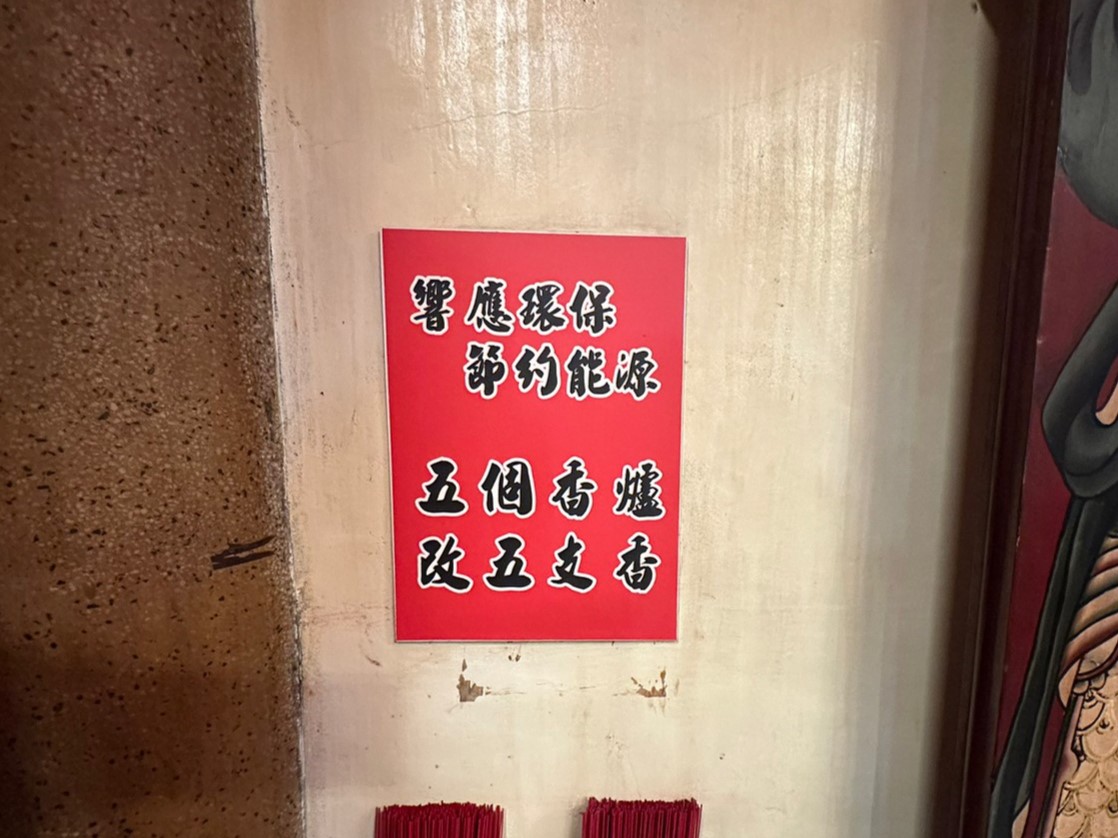 響應環保
節約能源
五個香爐
改五支香